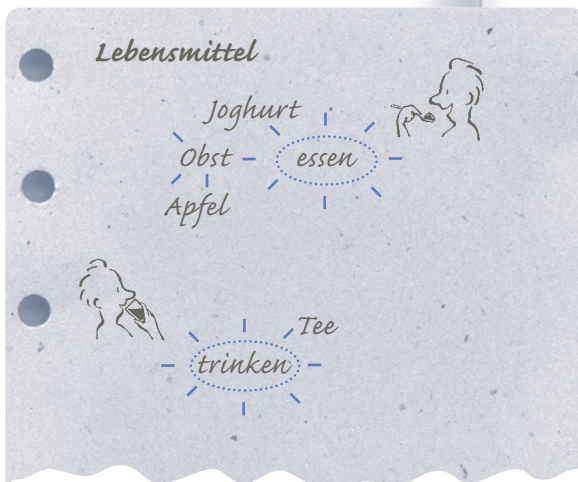 Lebensmittel
Joghurt
Obst essen
Apfel
Tee
trinken